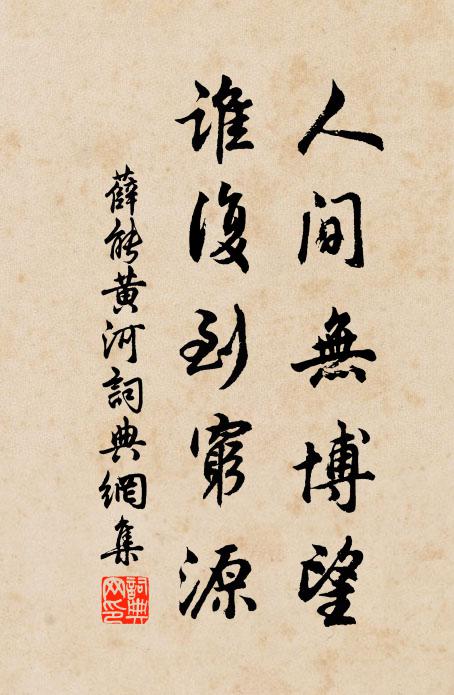 人間無博望
誰復到窮源
薛能黃河詞典網集
詞典
网印